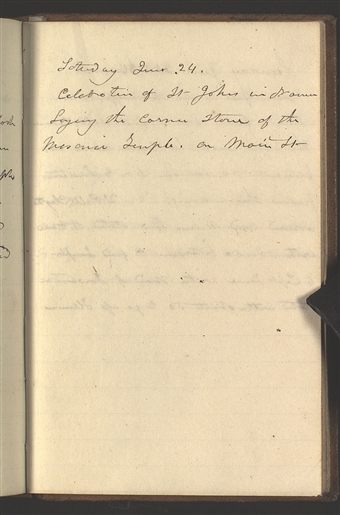 Saturday June 24.
Celebration of St Johns in
Laying the Corner Stone of the
Masonic Temple. on Main St